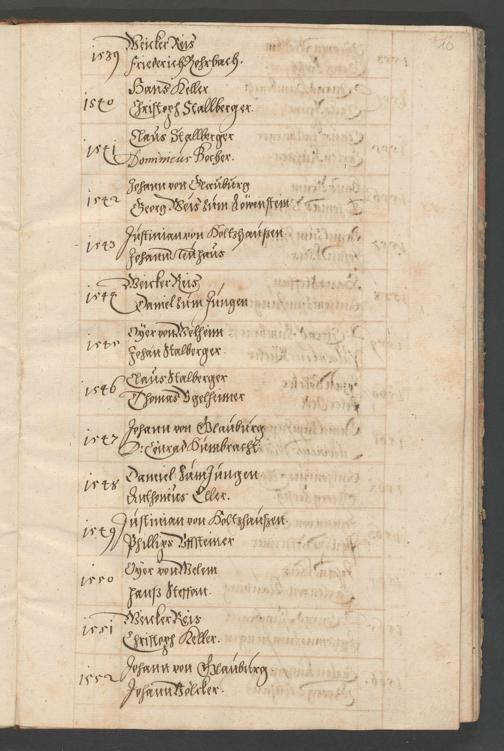 10
Weicker Reis
1539 Friederich Rohrbach.
Hans Keller
1540 Christoph Stallberger.
Claus Stallberger
1541 Dominicus Bocher.
Johann von Glauburg
1542 Georg Weis zum Löwenstein
Justinian von Holtzhausen
1543 Johann Neuhaus
Weicker Reis
1544 Daniel zum Jungen
Oyer von Melheim
1545 Johan Stalberger.
Claus Stalberger
1546 Thomas Ugelheimer
Johann von Glauburg
1547 D: Conrad Humbracht
Daniel zum Jungen
1548 Anthonius Eller.
Justinian von Holtzhausen
1549 Phillips Uffsteiner
Oyer von Melem
1550 Hanß Steffan.
Weicker Reis
1551 Christoph Keller.
Johann von Glauburg
1552 Johann Völcker.